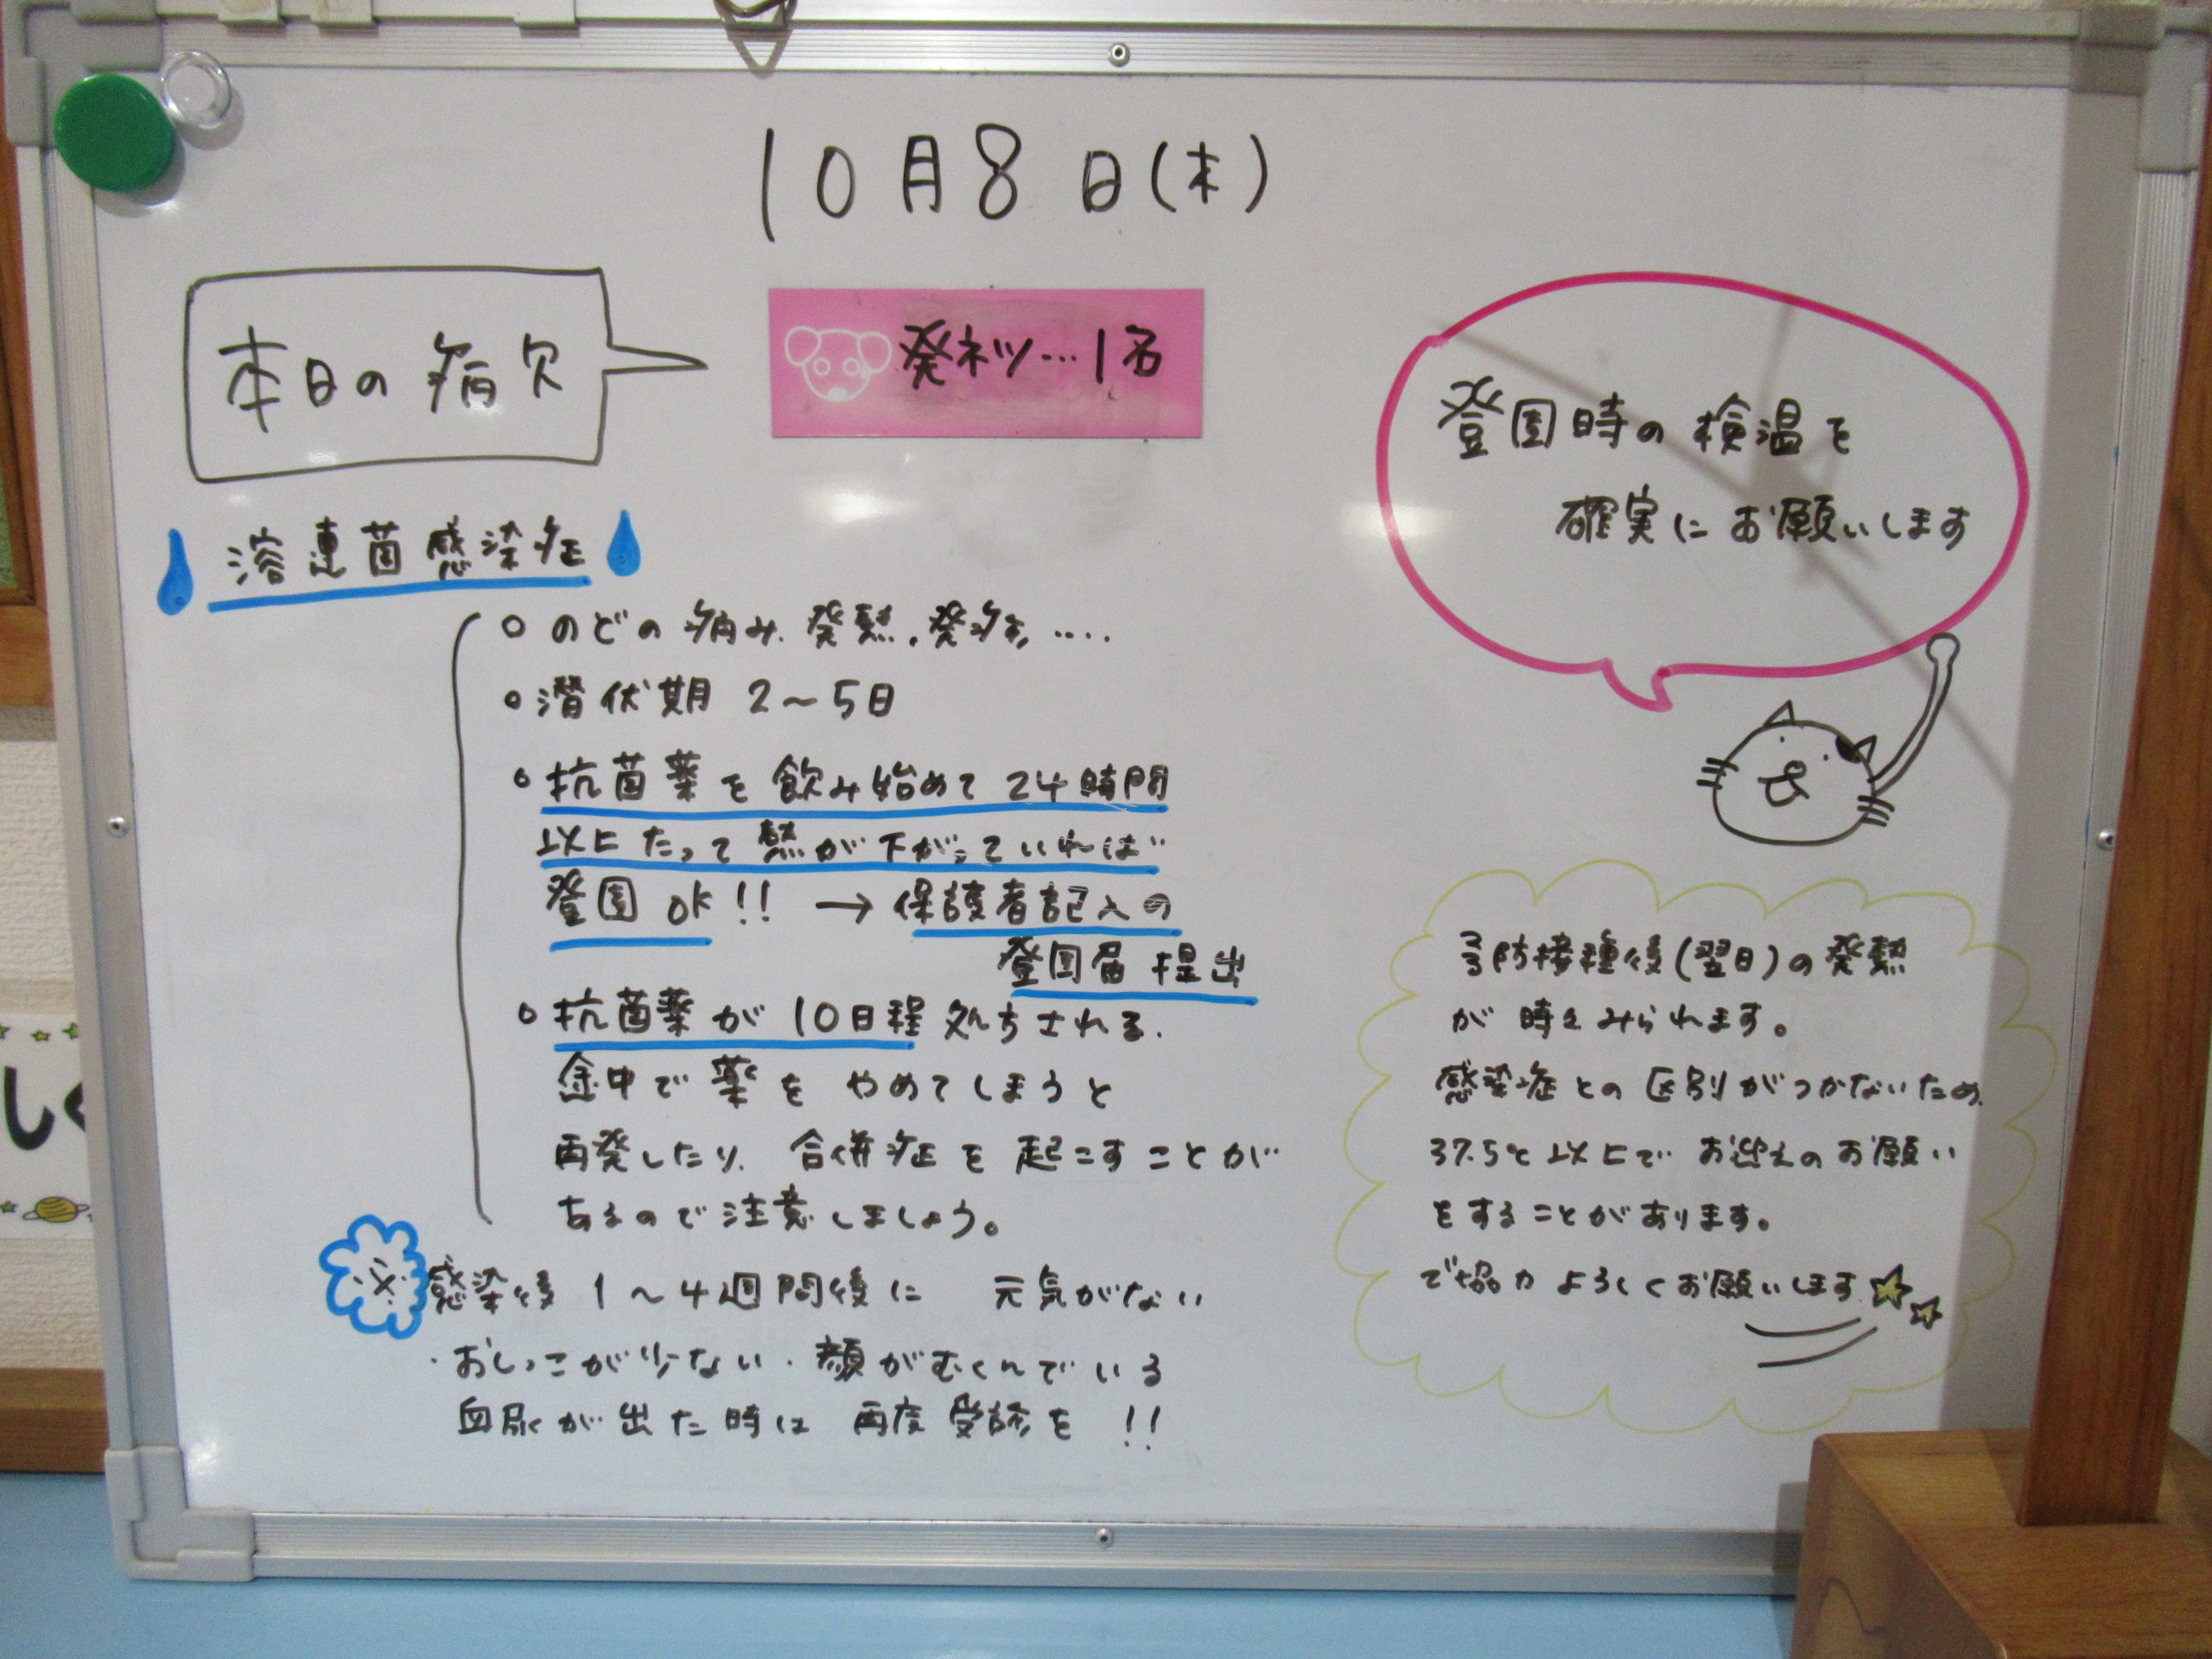 10月8日(木)
本日の病欠
発ネツ…1名
登園時の検温を
確実にお願いします
溶連菌感染症
○のどの痛み、発熱、発疹、……
○潜伏期 2～5日
○抗菌薬を飲み始めて24時間
以上たって熱が下がっていれば
登園OK!! → 保護者記入の
登園届提出
○抗菌薬が10日程処方される。
途中で薬をやめてしまうと
再発したり、合併症を起こすことが
あるので注意しましょう。
※感染後1～4週間後に 元気がない
・おしっこが少ない・顔がむくんでいる
血尿が出た時は 再度受診を!!
予防接種後(翌日)の発熱
が時々みられます。
感染症との区別がつかないため、
37.5℃以上でお迎えのお願い
をすることがあります。
ご協力よろしくお願いします
しく